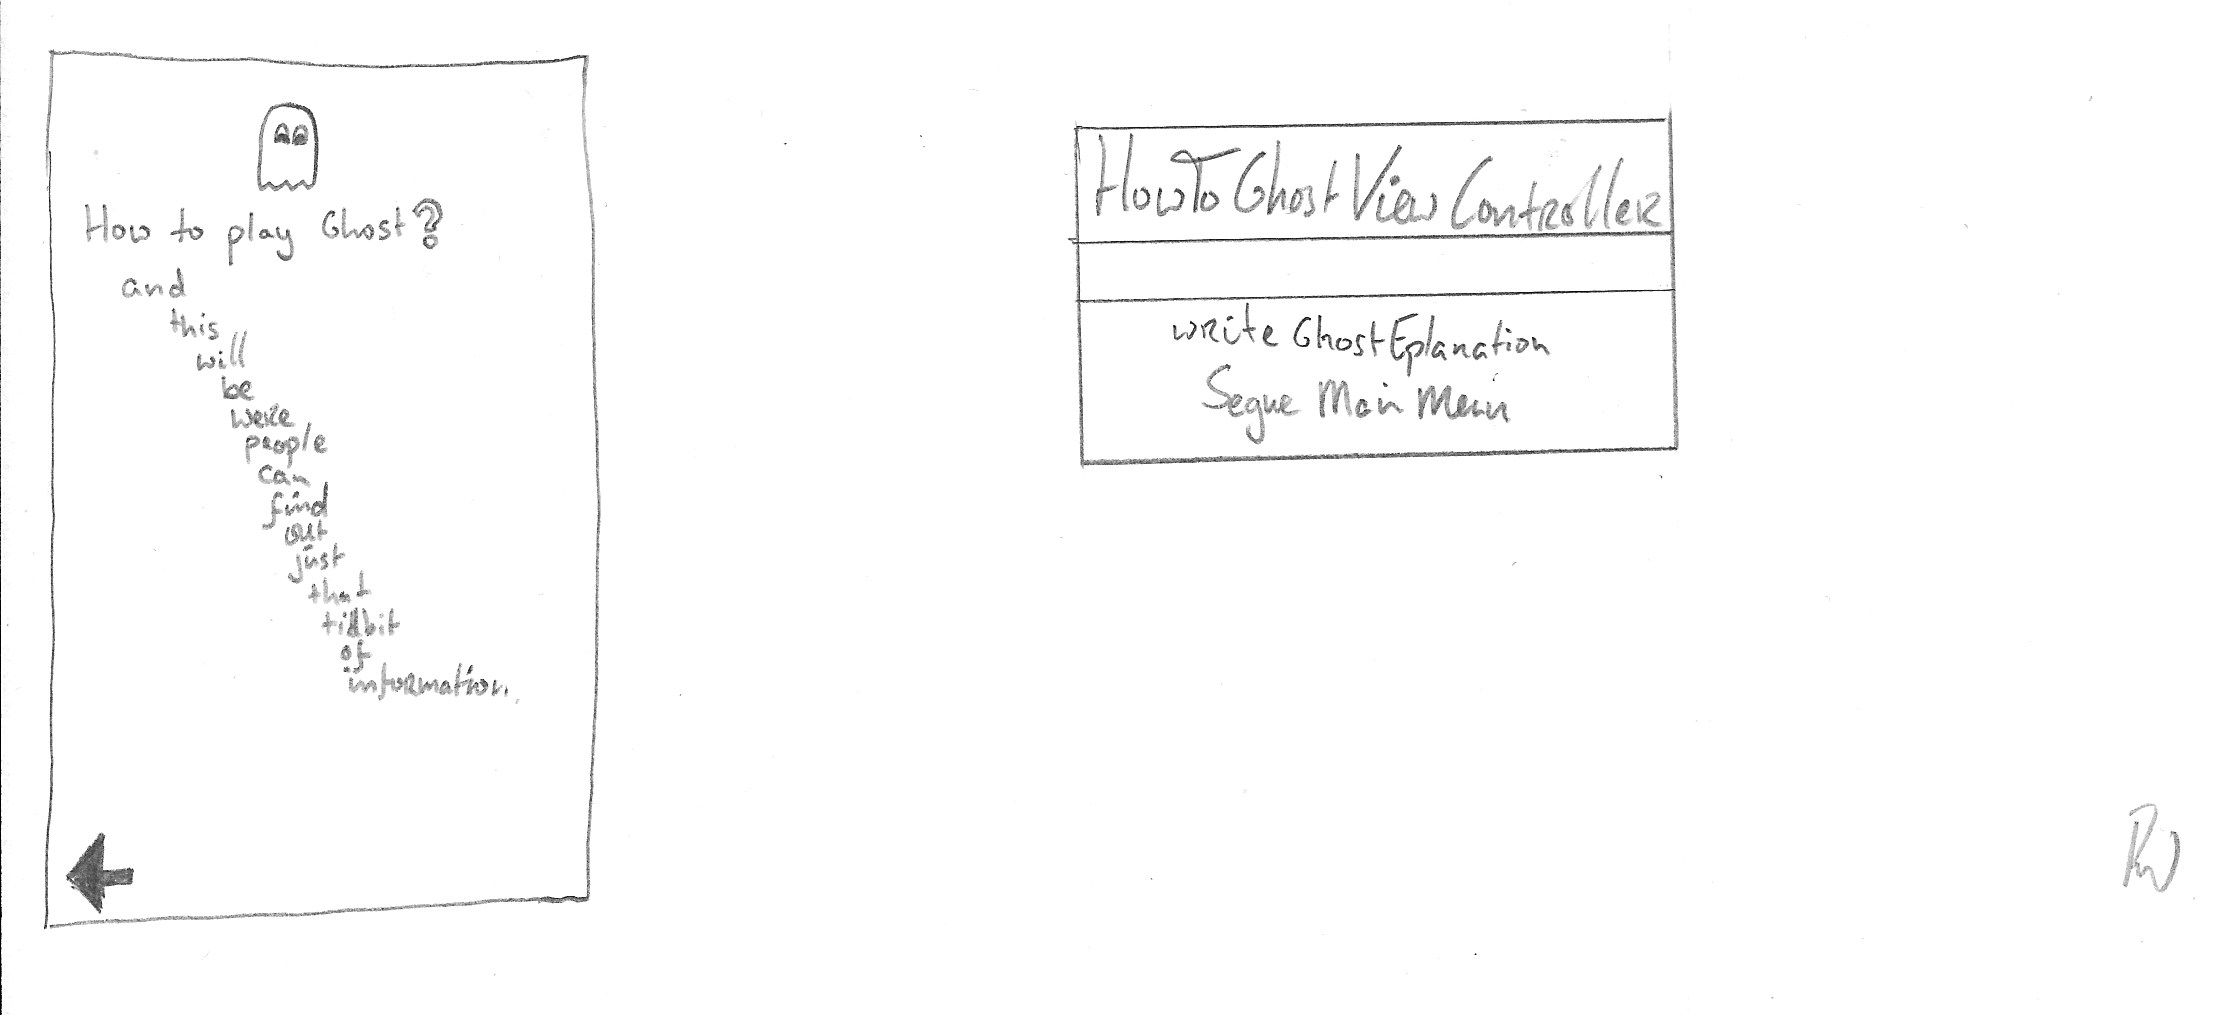 How to play Ghost?
and
this
will
be
were
people
can
find
out
just
that
tidbit
of
information.
HowToGhostViewController
write GhostEplanation
Segue Main Menu